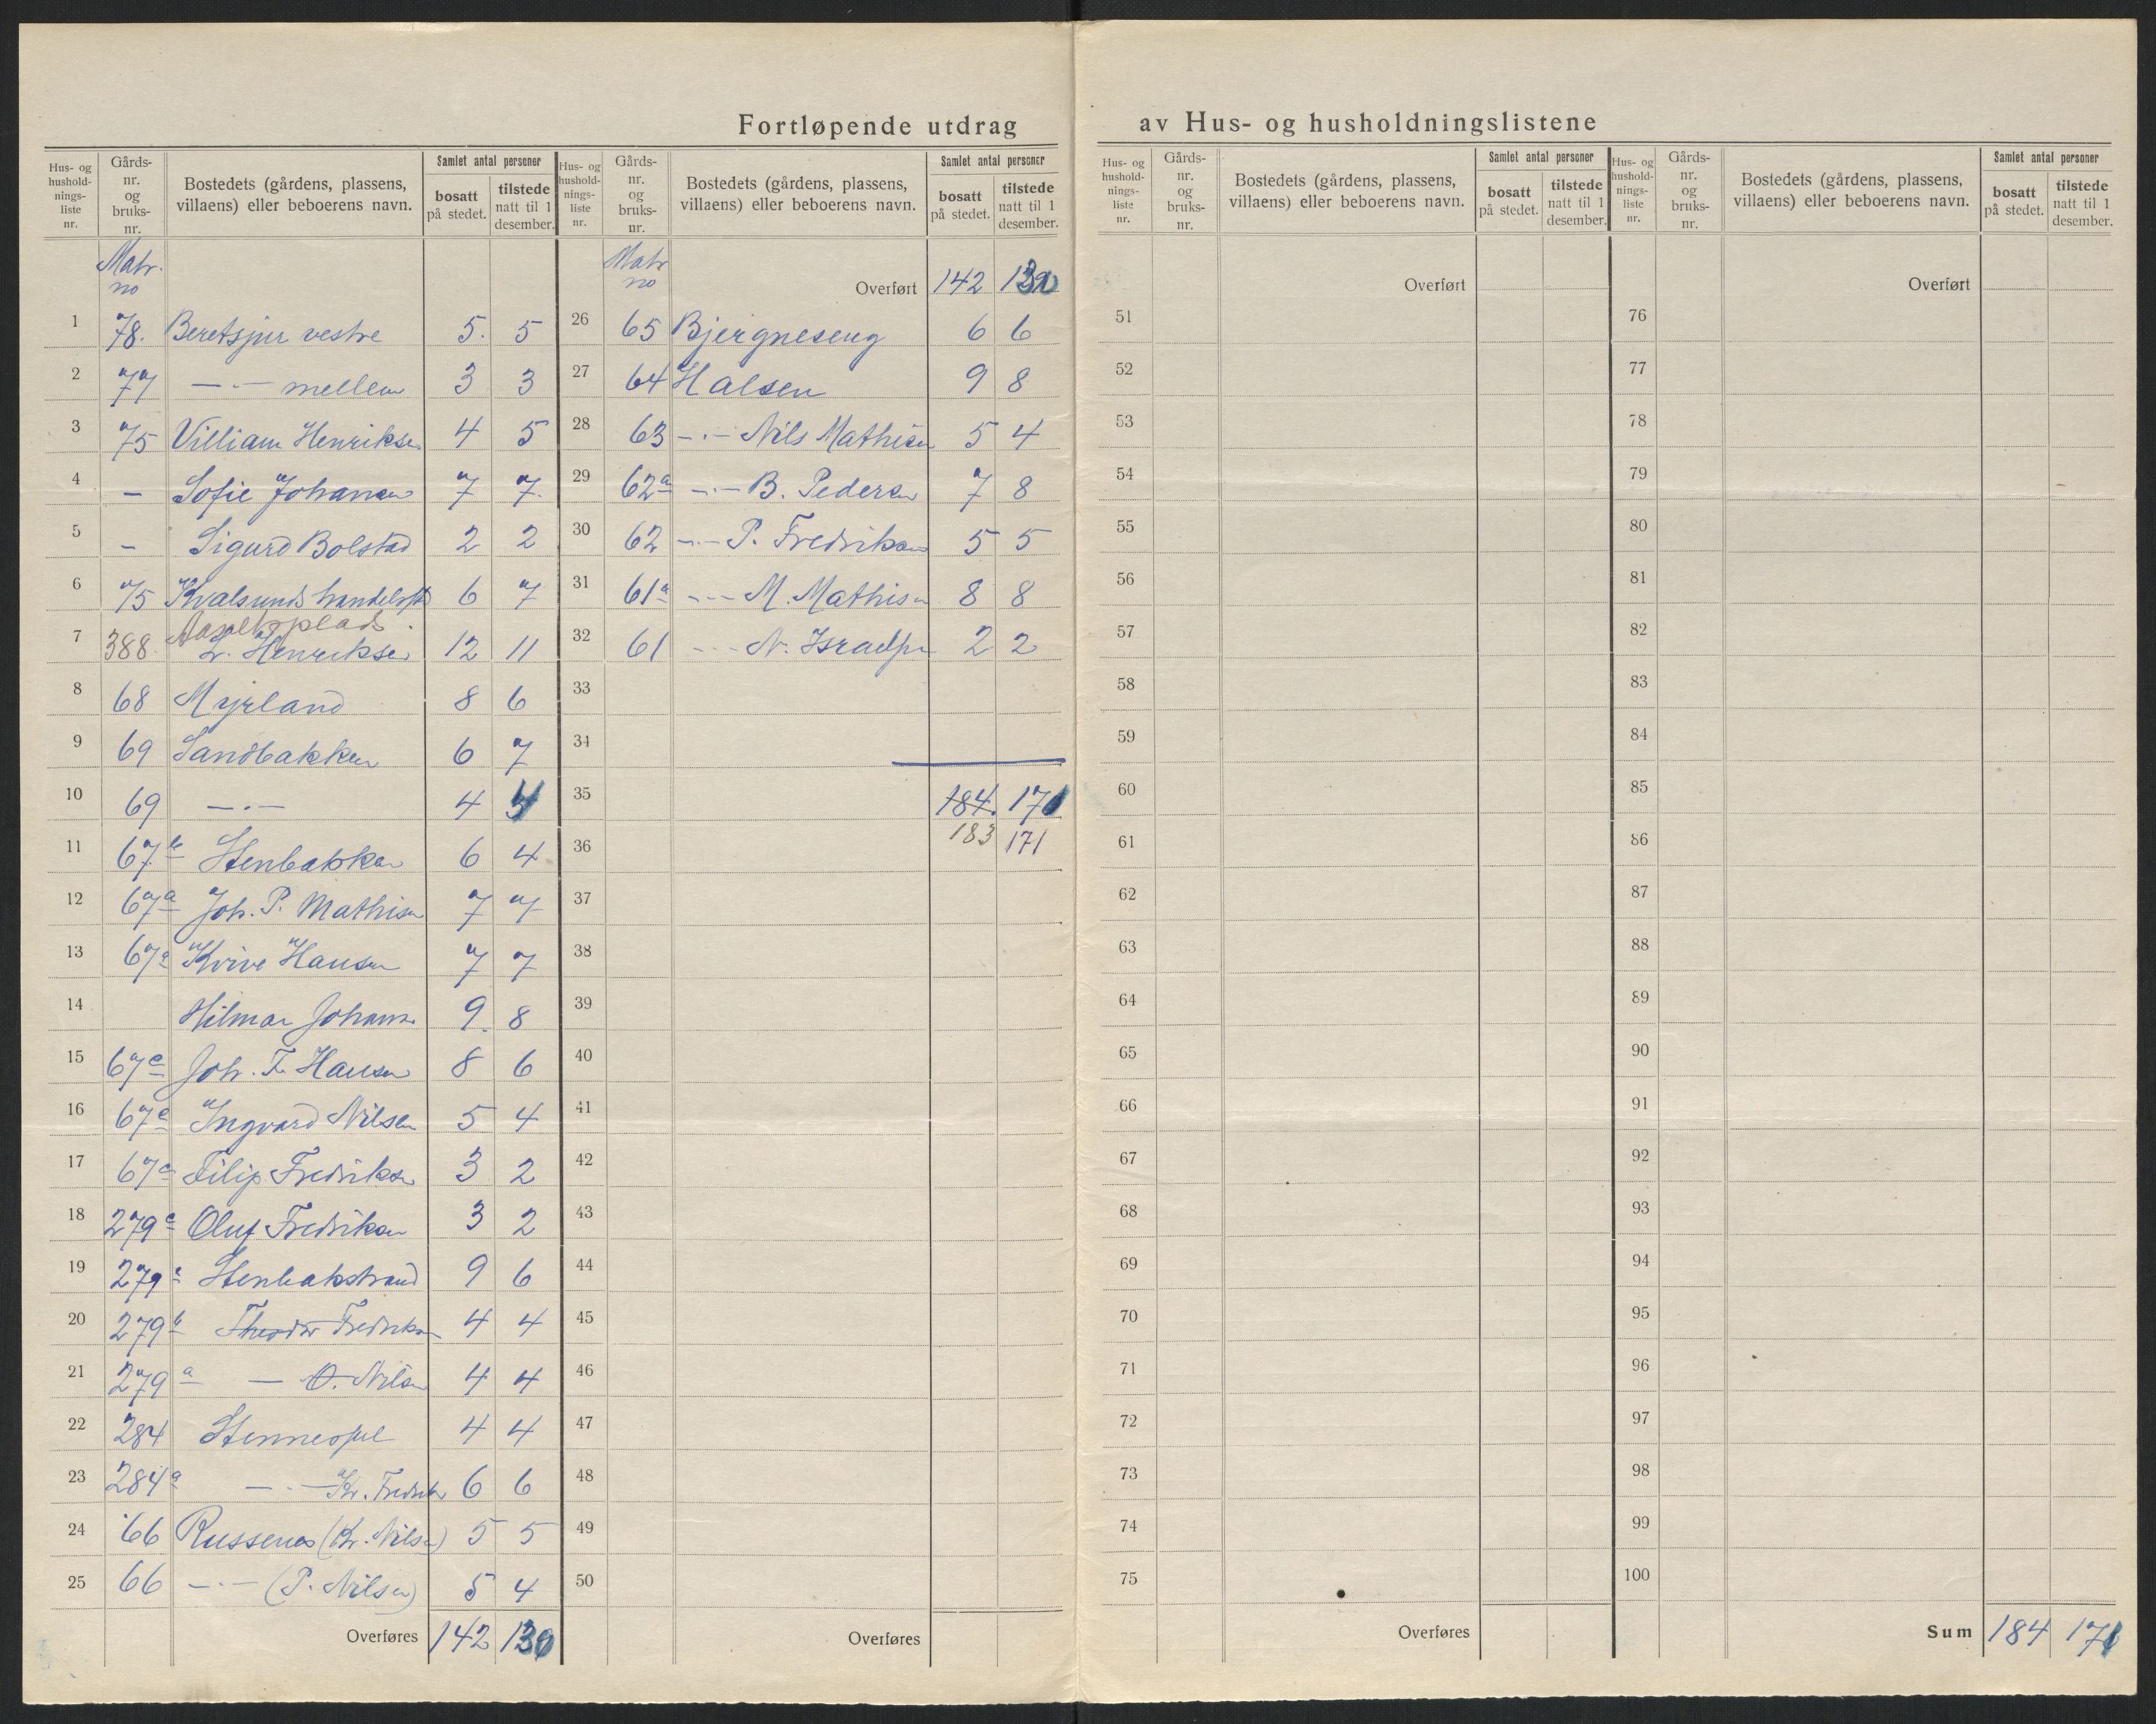 Fortløpende utdrag av Hus- og husholdningslistene
Hus- og hushold-nings-liste nr. | Gårds-nr. og bruks-nr. | Bostedets (gårdens, plassens, villaens) eller beboerens navn. | Samlet antal personer | bosatt på stedet. | tilstede natt til 1 desember.
Matr. no
1 78. Beretsjur vestre 5. 5
2 77 —·— mellem 3 3
3 75 Villiam Henriksen 4 5
4 - Sofie Johansen 7 7.
5 - Sigurd Bolstad 2 2
6 75 Kvalsunds handelsstd 6 7
7 388. L. Henriksen 12 11
8 68 Myrland 8 6
9 69 Sandbakken 6 7
10 69 —·— 4 4
11 67b Stenbakken 6 4
12 67a Joh. P. Mathisen 7 7
13 67a Hansen 7 7
14 Hilmar Johans. 9. 8
15 67c Joh. F. Hansen 8 6
16 67c Ingvard Nilsen 5 4
17 67c Filip Fredriksen 3 2
18 279c Oluf Fredriksen 3 2
19 279 Stenbakstrand 9 6
20 279b Theodor Fredriksen 4 4
21 279a — O. Nilsen 4 4
22 284 4 4
23 284a —·— Kr. Fredriks 6 6
24 66 Russenes (Kr. Nilsen) 5 5
25 66 —·— (P. Nilsen) 5 4
Overføres 142 130
Hus- og hushold-nings-liste nr. | Gårds-nr. og bruks-nr. | Bostedets (gårdens, plassens, villaens) eller beboerens navn. | Samlet antal personer | bosatt på stedet. | tilstede natt til 1 desember.
Matr no Overført 142 130
26 65 Bjergneseng 6 6
27 64 Halsen 9 8
28 63 —·— Nils Mathisen 5 4
29 62a —·— B. Pedersen 7 8
30 62 —·— P. Fredriksen 5 5
31 61a —·— M. Mathisen 8 8
32 61 —·— N. Israelsen 2 2
33
34
35 184. 171
36 183 171
37
38
39
40
41
42
43
44
45
46
47
48
49
50
Overføres
Hus- og hushold-nings-liste nr. | Gårds-nr. og bruks-nr. | Bostedets (gårdens, plassens, villaens) eller beboerens navn. | Samlet antal personer | bosatt på stedet. | tilstede natt til 1 desember.
Overført
51
52
53
54
55
56
57
58
59
60
61
62
63
64
65
66
67
68
69
70
71
72
73
74
75
Overføres
Hus- og hushold-nings-liste nr. | Gårds-nr. og bruks-nr. | Bostedets (gårdens, plassens, villaens) eller beboerens navn. | Samlet antal personer | bosatt på stedet. | tilstede natt til 1 desember.
Overført
76
77
78
79
80
81
82
83
84
85
86
87
88
89
90
91
92
93
94
95
96
97
98
99
100
Sum 184 171